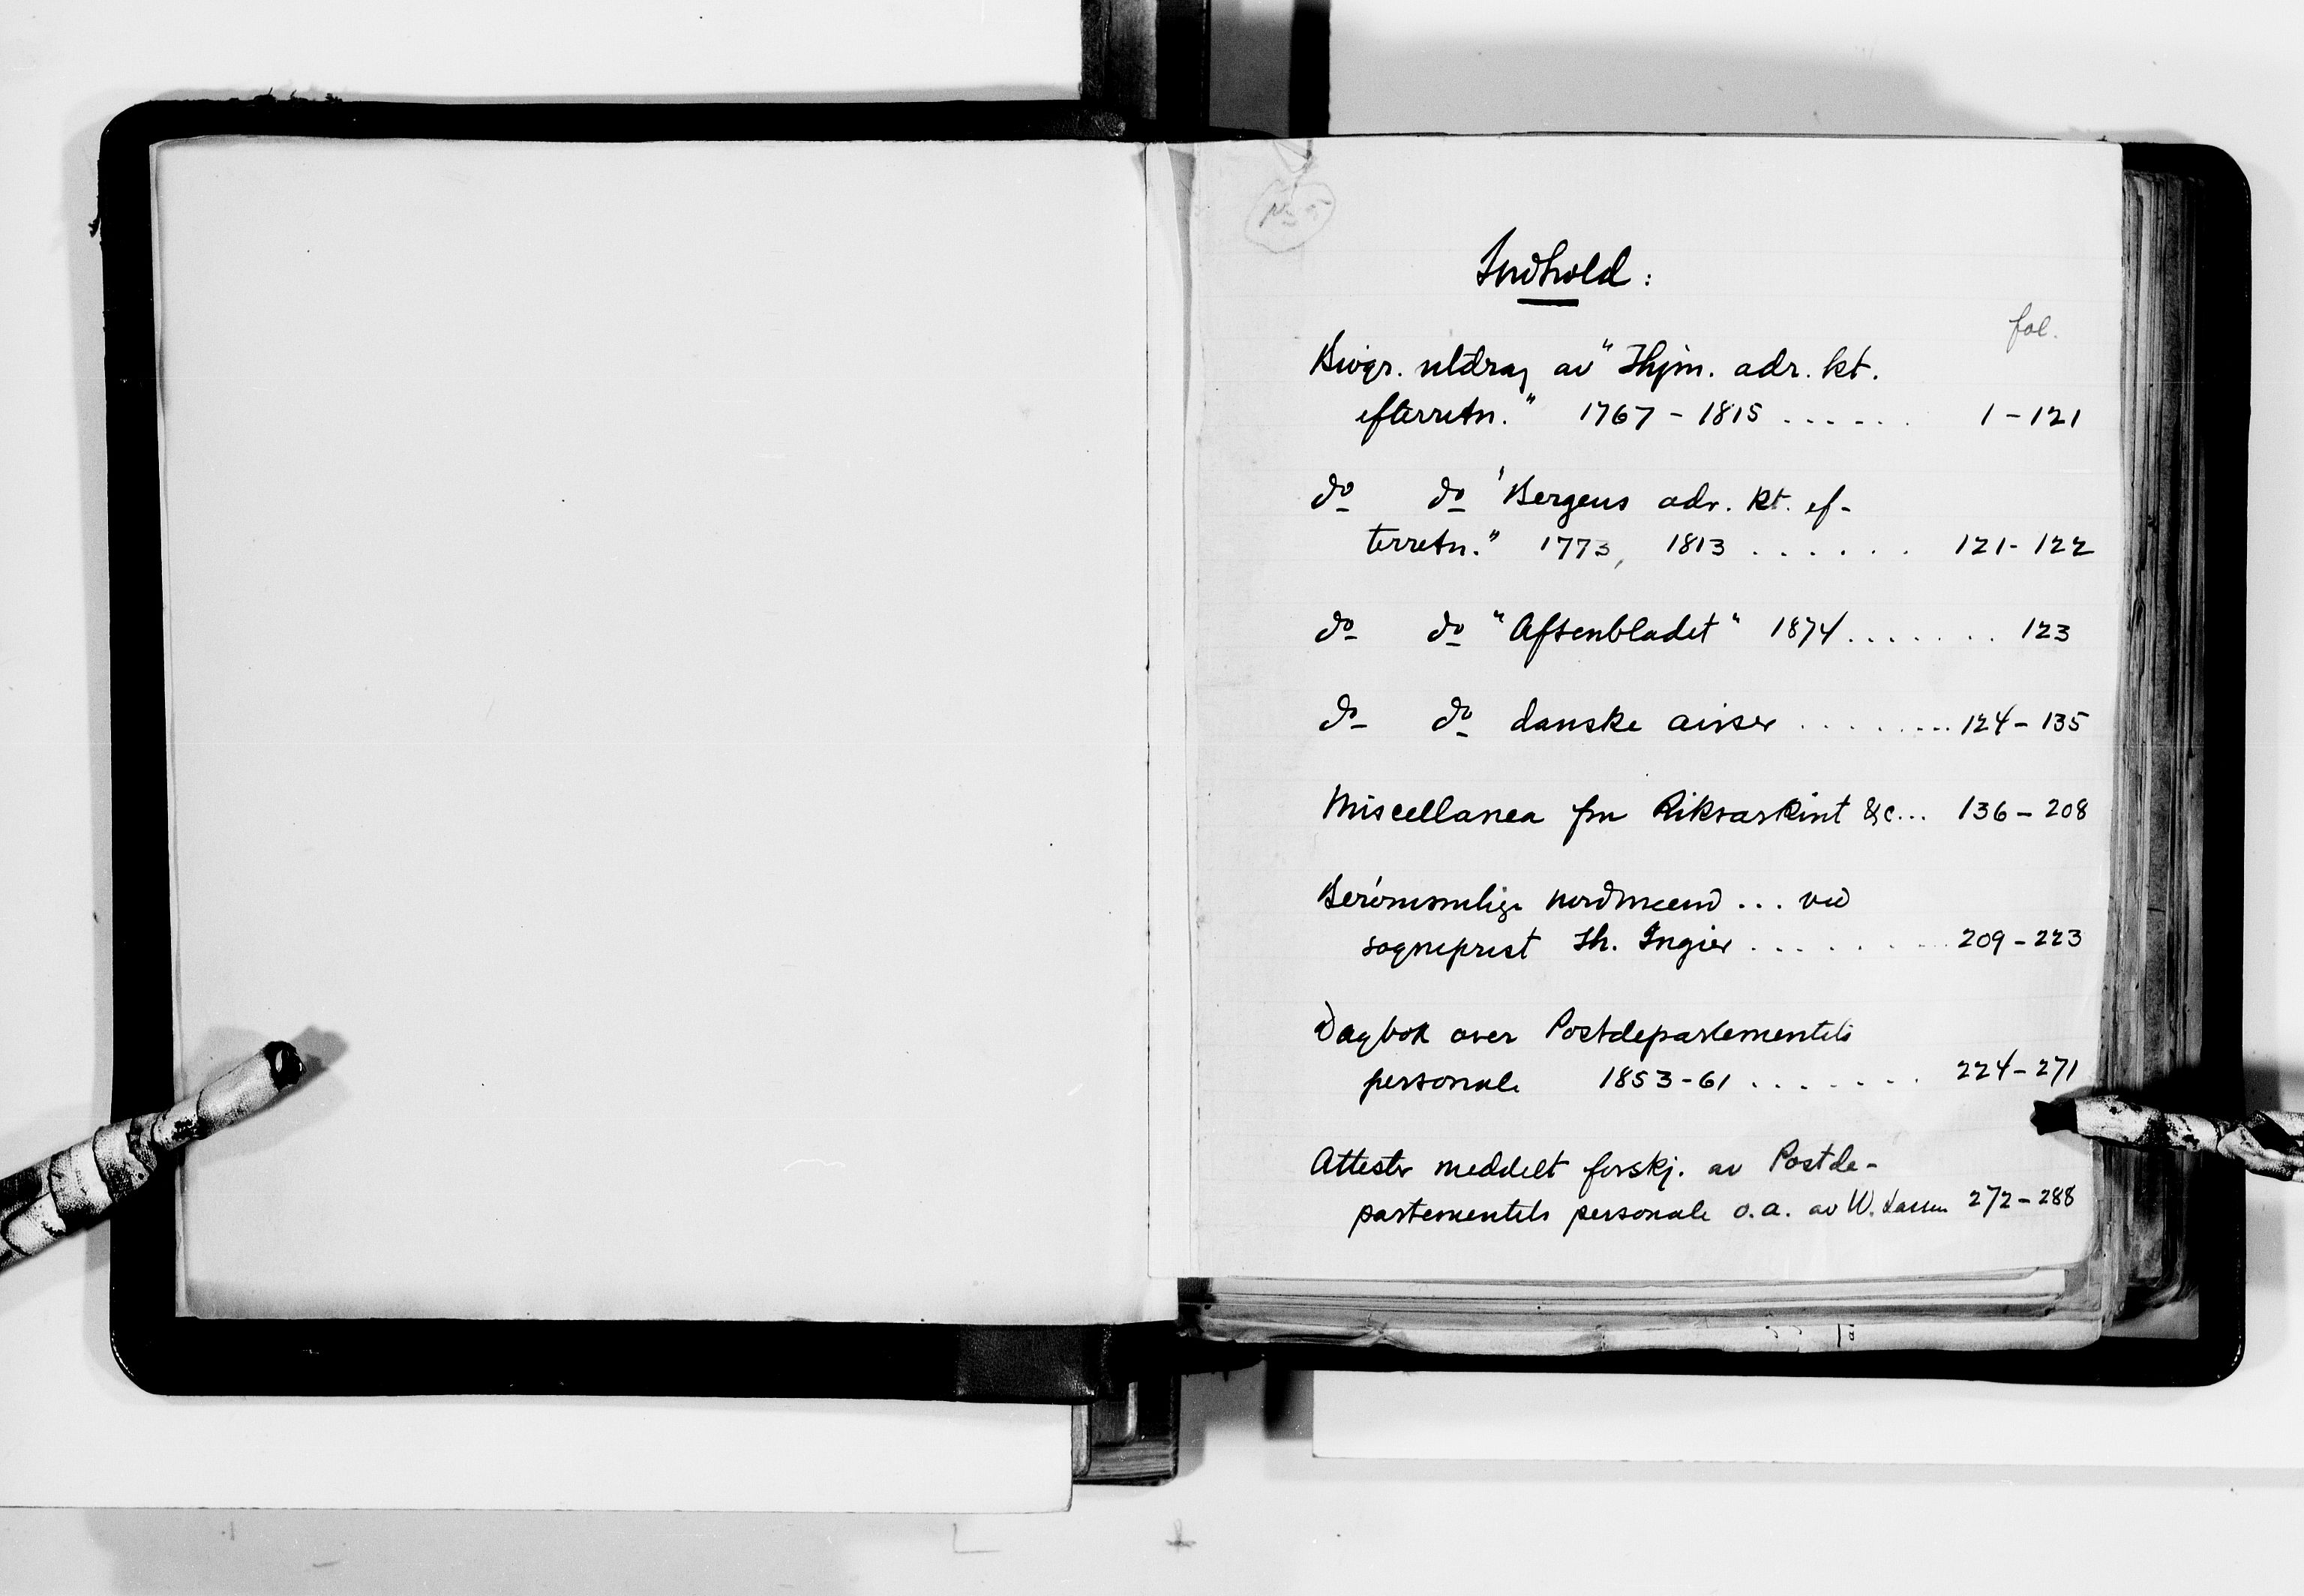 Indhold:
fol.
Biogr. utdrag av "Thjm. adr. kt.
efterretn." 1767 - 1815 ...... 1 - 121
do do "Bergens adr. kt. ef-
terretn." 1773, 1813 ...... 121 - 122
do do "Aftenbladet" 1874 ....... 123
do do danske aviser ........ 124 - 135
Miscellanea fra Riksarkivet &c... 136 - 208
Berømmelige nordmænd ... ved
sogneprest Th. Ingier ........ 209 - 223
Dagbok over Postdepartementets
personale 1853-61 ....... 224 - 271
Attester meddelt forskj. av Postde-
partementets personale o.a. av W. Lassen 272 - 288